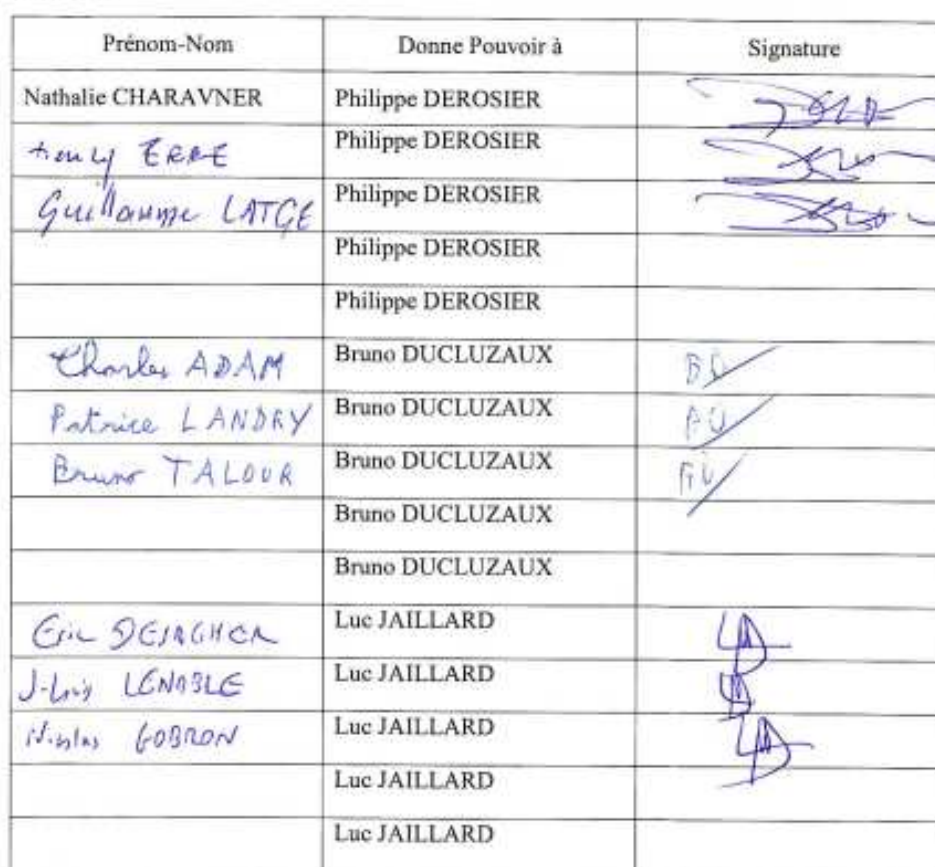 Prénom-Nom Donne Pouvoir à Signature
Nathalie CHARAVNER Philippe DEROSIER
ERBE Philippe DEROSIER
Guillaume LATGE Philippe DEROSIER
Philippe DEROSIER
Philippe DEROSIER
Charles ADAM Bruno DUCLUZAUX BD
Patrice LANDRY Bruno DUCLUZAUX BD
Bruno TALOUR Bruno DUCLUZAUX
Bruno DUCLUZAUX
Bruno DUCLUZAUX
Eric Luc JAILLARD
J-Louis LENOBLE Luc JAILLARD
Nicolas GOBRON Luc JAILLARD
Luc JAILLARD
Luc JAILLARD